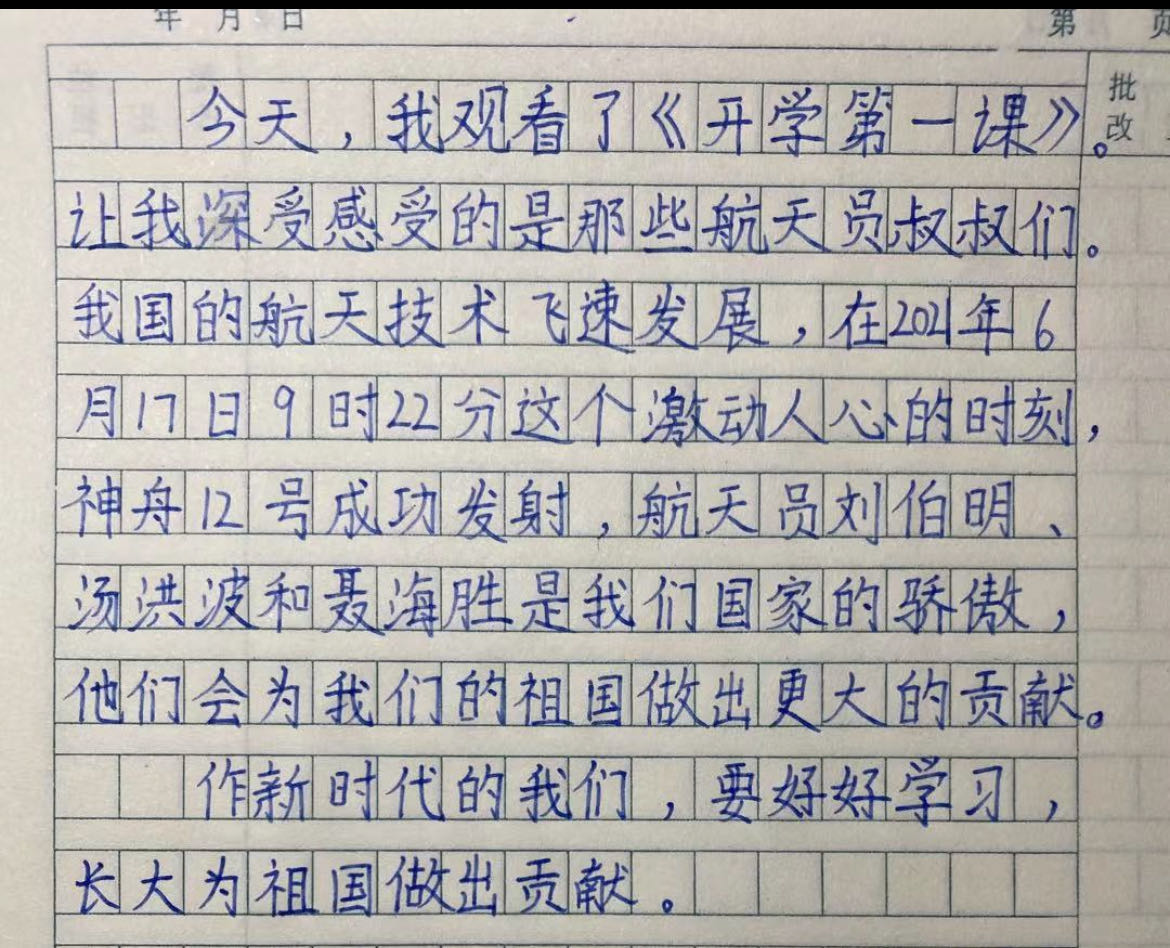 年 月 日
第 页
批改
今天，我观看了《开学第一课》。
让我深受感受的是那些航天员叔叔们。
我国的航天技术飞速发展，在2021年6
月17日9时22分这个激动人心的时刻，
神舟12号成功发射，航天员刘伯明、
汤洪波和聂海胜是我们国家的骄傲，
他们会为我们的祖国做出更大的贡献。
作新时代的我们，要好好学习，
长大为祖国做出贡献。